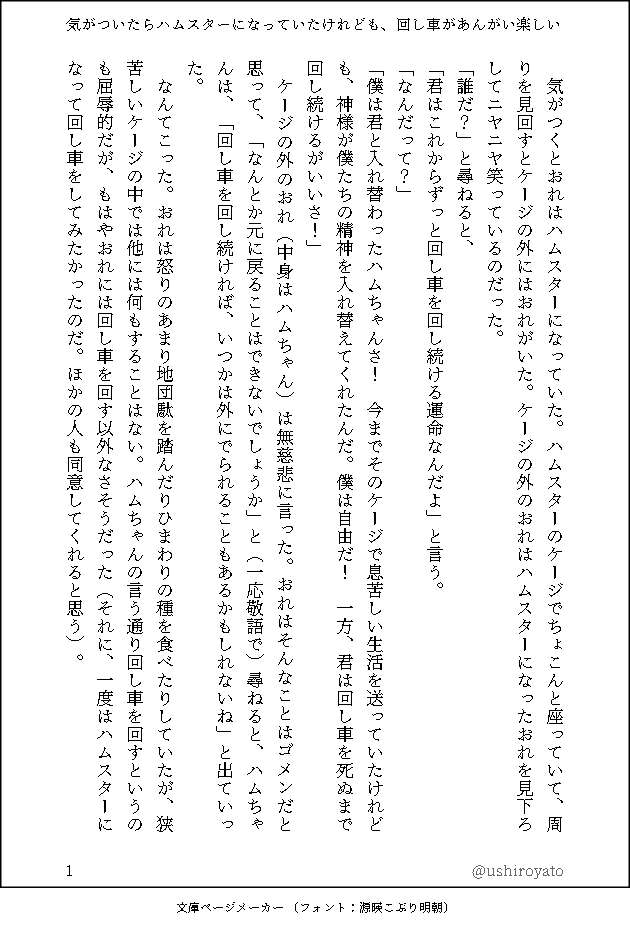 気がついたらハムスターになっていたけれども、回し車があんがい楽しい
　気がつくとおれはハムスターになっていた。ハムスターのケージでちょこんと座っていて、周
りを見回すとケージの外にはおれがいた。ケージの外のおれはハムスターになったおれを見下ろ
してニヤニヤ笑っているのだった。
「誰だ？」と尋ねると、
「君はこれからずっと回し車を回し続ける運命なんだよ」と言う。
「なんだって？」
「僕は君と入れ替わったハムちゃんさ！　今までそのケージで息苦しい生活を送っていたけれど
も、神様が僕たちの精神を入れ替えてくれたんだ。僕は自由だ！　一方、君は回し車を死ぬまで
回し続けるがいいさ！」
　ケージの外のおれ（中身はハムちゃん）は無慈悲に言った。おれはそんなことはゴメンだと
思って、「なんとか元に戻ることはできないでしょうか」と（一応敬語で）尋ねると、ハムちゃ
んは、「回し車を回し続ければ、いつかは外にでられることもあるかもしれないね」と出ていっ
た。
　なんてこった。おれは怒りのあまり地団駄を踏んだりひまわりの種を食べたりしていたが、狭
苦しいケージの中では他には何もすることはない。ハムちゃんの言う通り回し車を回すというの
も屈辱的だが、もはやおれには回し車を回す以外なさそうだった（それに、一度はハムスターに
なって回し車をしてみたかったのだ。ほかの人も同意してくれると思う）。
1
@ushiroyato
文庫ページメーカー（フォント：源暎こぶり明朝）